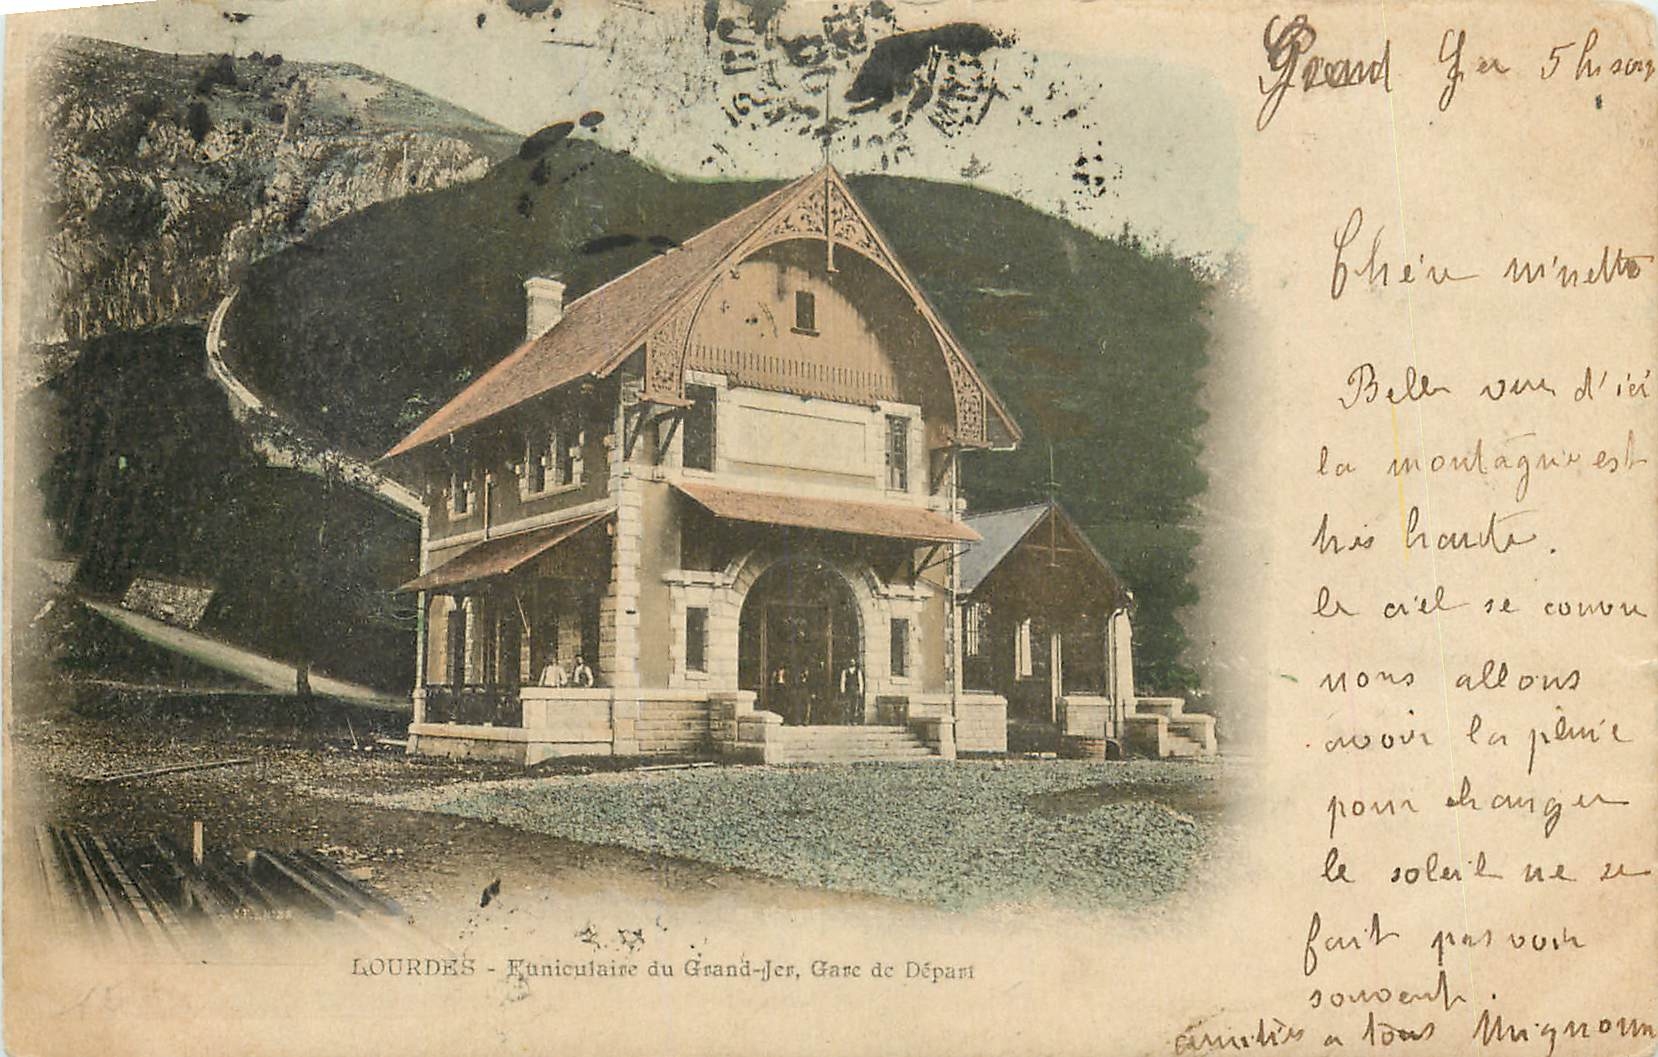 Grand Jer 5 h soir
Chère minette
Belle vue d'ici
la montagne est
très haute.
le ciel se couvre
nous allons
avoir la pluie
pour changer
le soleil ne se
fait pas voir
souvent.
amitiés a tous Mignonne
LOURDES - Funiculaire du Grand-Jer, Gare de Départ